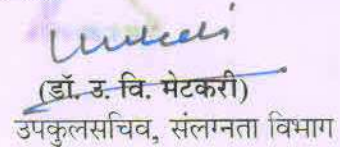 (डॉ. उ. वि. मेटकरी)
उपकुलसचिव, संलग्नता विभाग